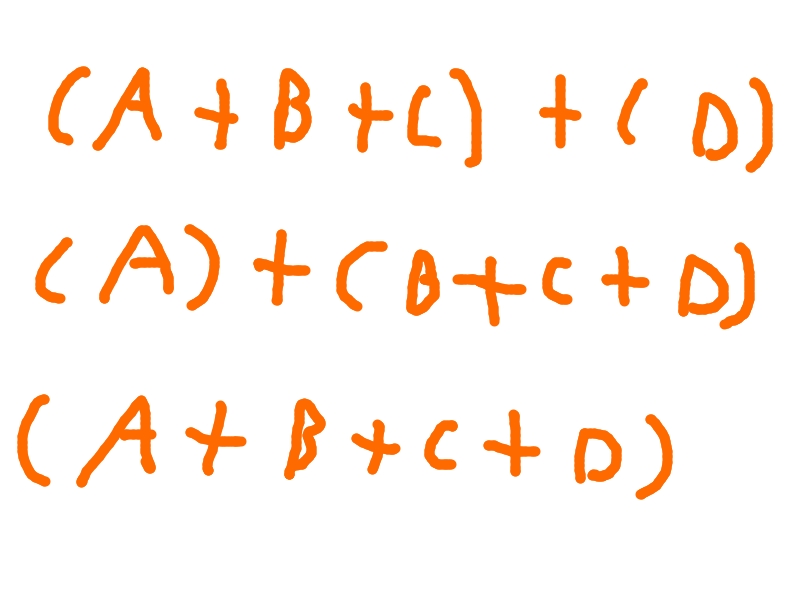 (A + B + C) + (D)
(A) + (B + C + D)
(A + B + C + D)